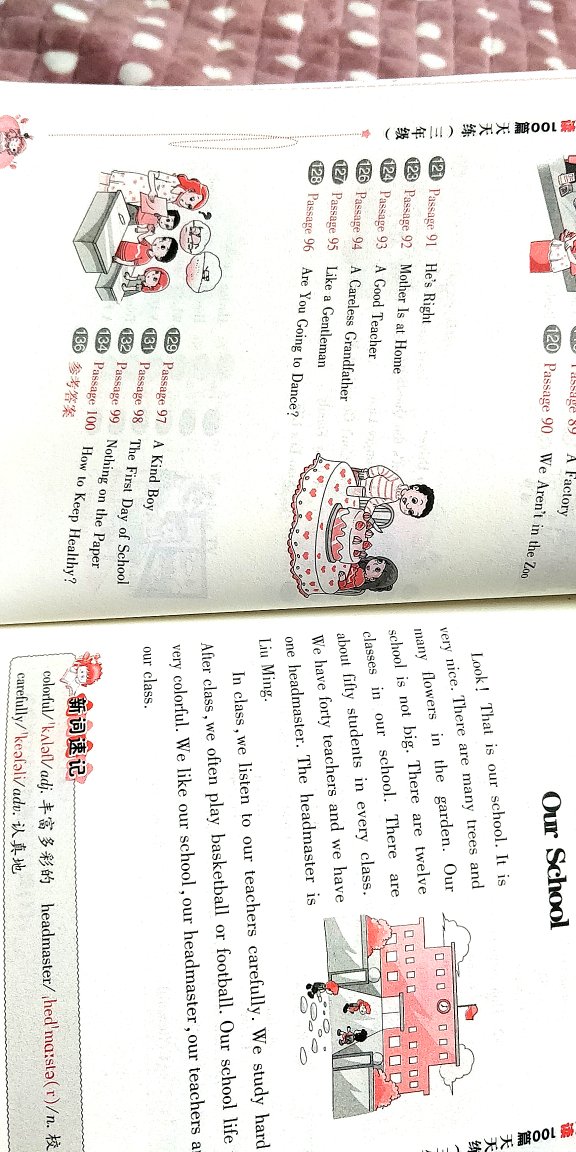 100篇 天天练(三年级)
Passage 89 A Factory
120 Passage 90 We Aren't in the Zoo
121 Passage 91 He's Right
123 Passage 92 Mother Is at Home
124 Passage 93 A Good Teacher
126 Passage 94 A Careless Grandfather
127 Passage 95 Like a Gentleman
128 Passage 96 Are You Going to Dance?
129 Passage 97 A Kind Boy
131 Passage 98 The First Day of School
132 Passage 99 Nothing on the Paper
134 Passage 100 How to Keep Healthy?
136 参考答案
100篇 天天
Our School
Look! That is our school. It is
very nice. There are many trees and
many flowers in the garden. Our
school is not big. There are twelve
classes in our school. There are
about fifty students in every class.
We have forty teachers and we have
one headmaster. The headmaster is
Liu Ming.
In class, we listen to our teachers carefully. We study hard
After class, we often play basketball or football. Our school life
very colorful. We like our school, our headmaster, our teachers
our class.
新词速记
colorful/ˈkʌləfl/adj. 丰富多彩的 headmaster/ˌhedˈmɑːstə(r)/n. 校
carefully/ˈkeəfəli/adv. 认真地